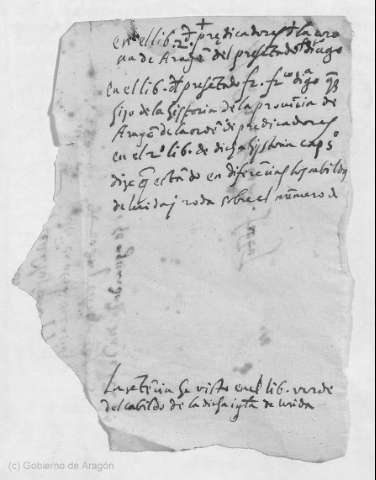 +
en el lib. 2. de predicadores de la cro
na de Arago del presentado diago
en el lib. del presentado fr. fr.co diago q
hijo de la historia de la provincia de
Arago de la orde de predicadores
en el 2o lib. de dicha historia cap.
dize q estado en diferencias los cabildos
de lerida y roda sobre el numero d
La setecia he visto en el lib. verde
del cabildo de la dicha iglia de lerida
(c) Gobierno de Aragón